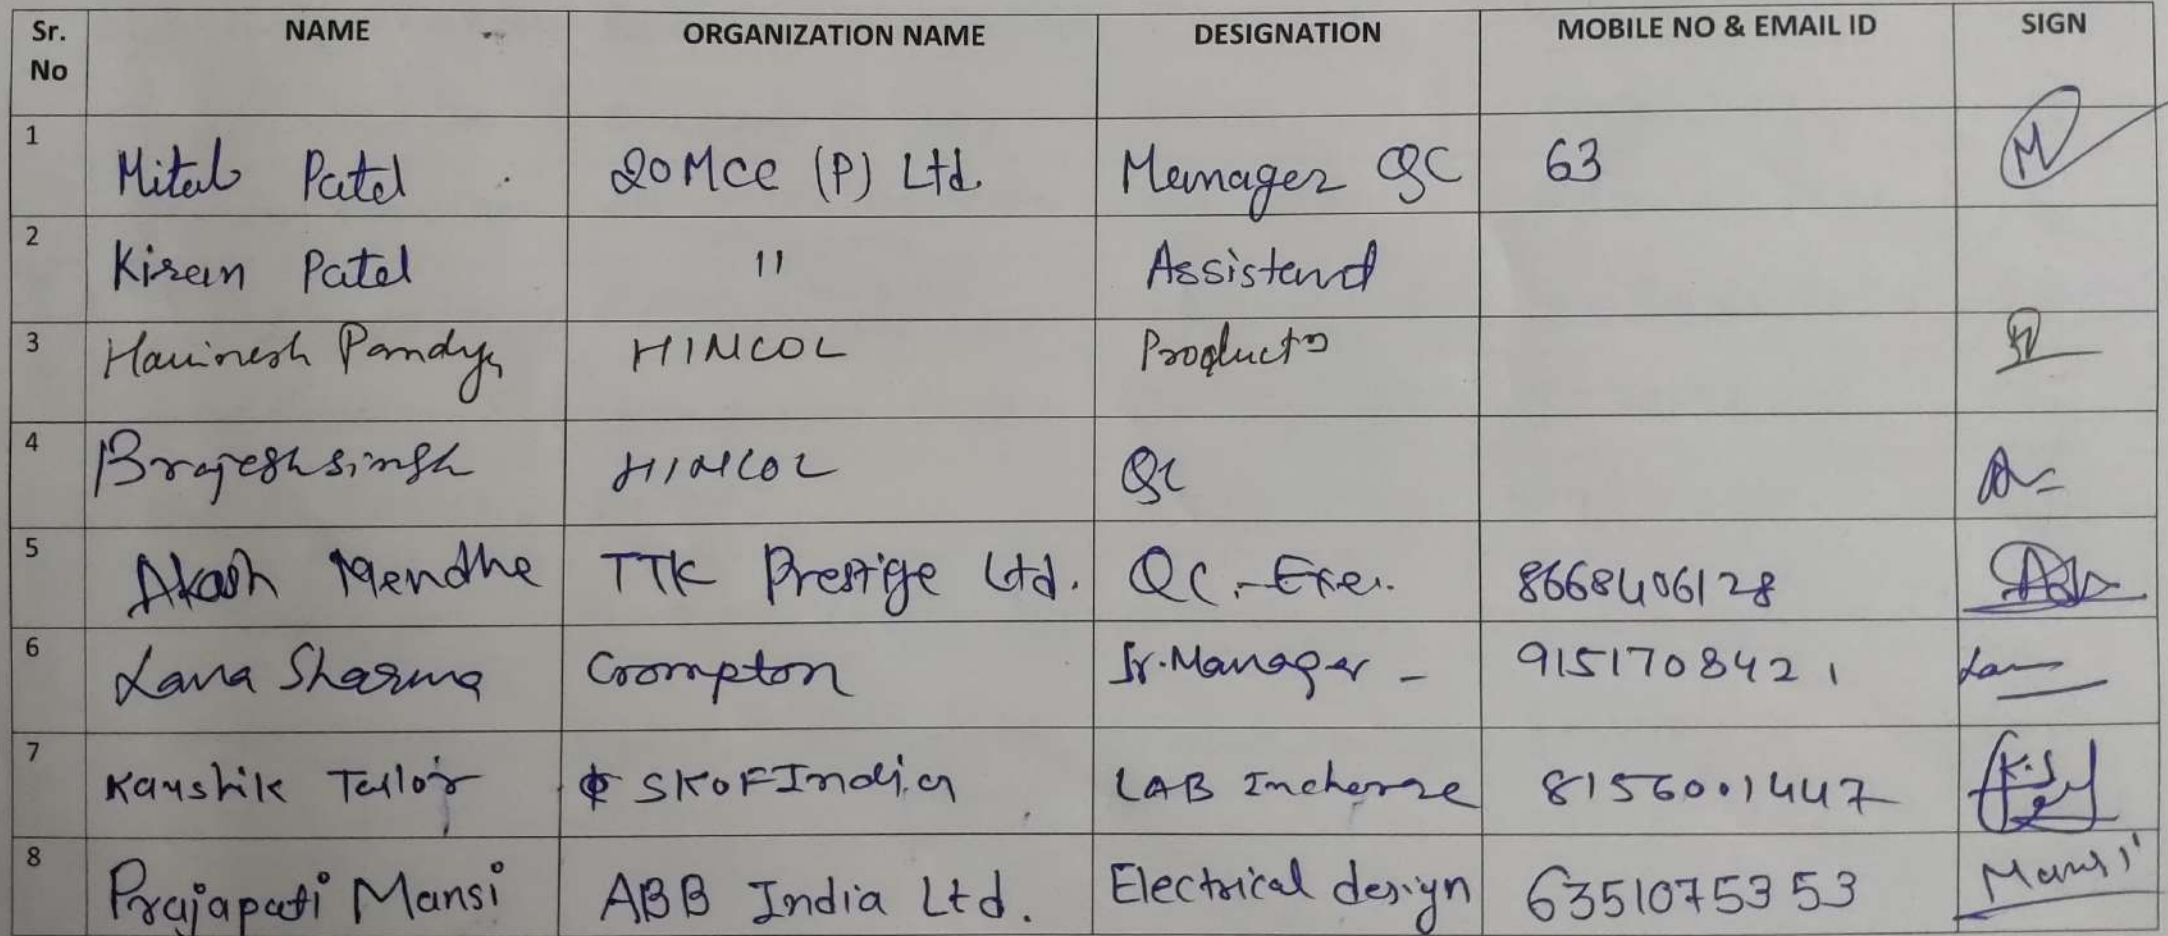 Sr. No NAME ORGANIZATION NAME DESIGNATION MOBILE NO & EMAIL ID SIGN
1 Mital Patel (P) Ltd. Manager QC 63 M
2 Kiran Patel 11 Assistend
3 Pandya HINCOL Product
4 Brajeshsingh HINCOL QC
5 Akash Mendhe TTK Prestige Ltd. QC.-Exe. 8668406128
6 Lava Sharma Crompton Sr.Manager - 9151708421
7 Kaushik Tailor SKOFIndia LAB Incharge 8156001447
8 Prajapati Mansi ABB India Ltd. Electrical design 6351075353 Mansi